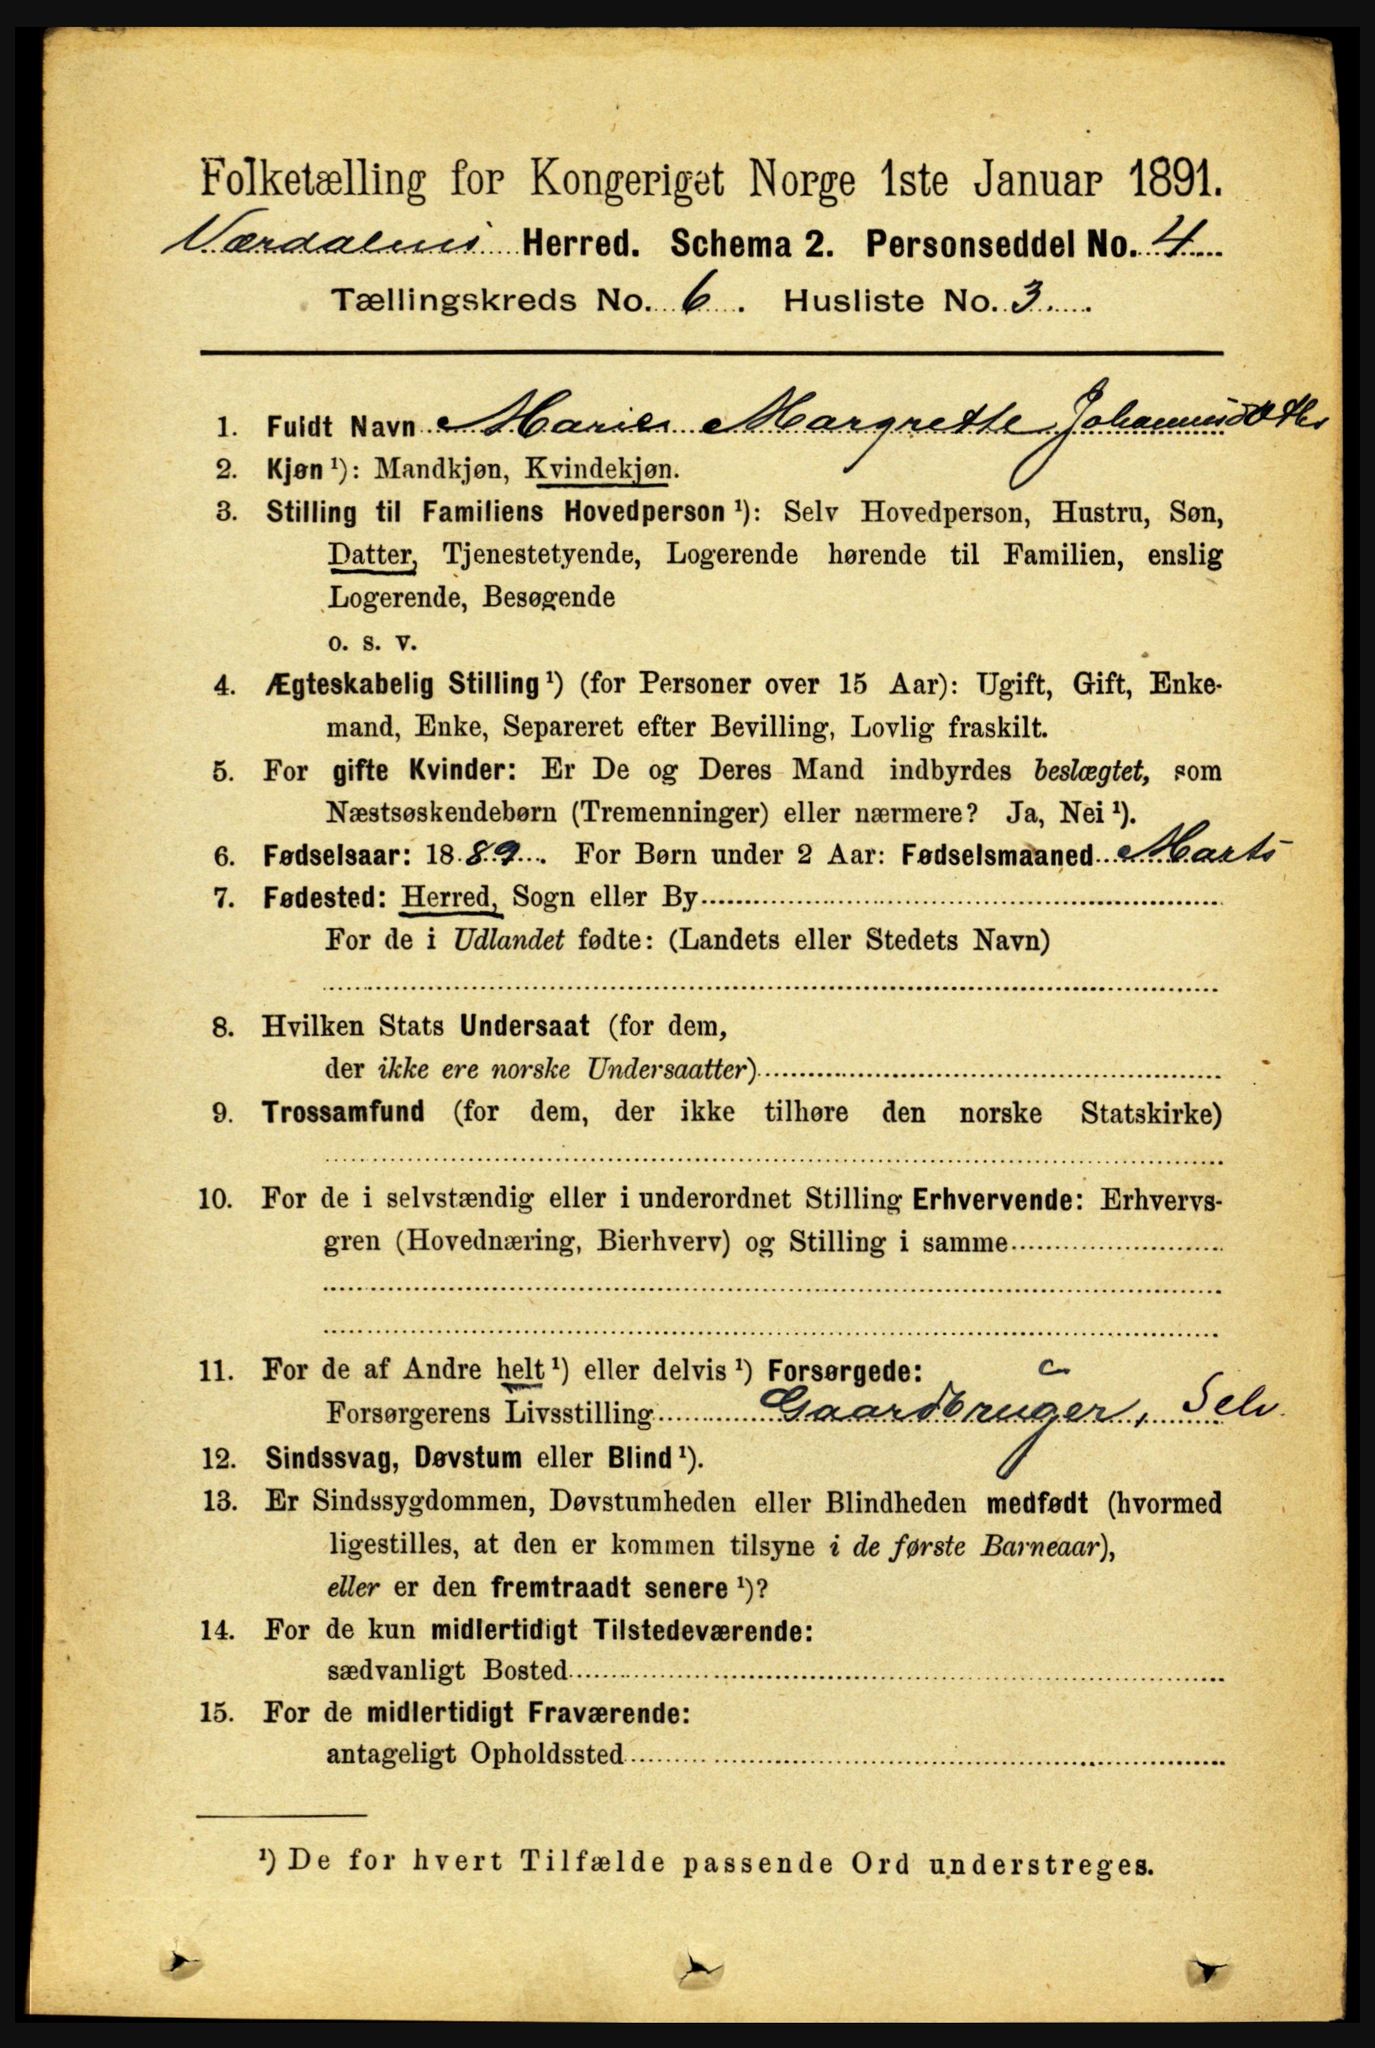 Folketælling for Kongeriget Norge 1ste Januar 1891.
Værdalens Herred. Schema 2. Personseddel No. 4
Tællingskreds No. 6. Husliste No. 3
1. Fuldt Navn Marie Margrette Johannesdatter
2. Kjøn ¹): Mandkjøn, Kvindekjøn.
3. Stilling til Familiens Hovedperson ¹): Selv Hovedperson, Hustru, Søn,
Datter, Tjenestetyende, Logerende hørende til Familien, enslig
Logerende, Besøgende
o. s. v.
4. Ægteskabelig Stilling ¹) (for Personer over 15 Aar): Ugift, Gift, Enke-
mand, Enke, Separeret efter Bevilling, Lovlig fraskilt.
5. For gifte Kvinder: Er De og Deres Mand indbyrdes beslægtet, som
Næstsøskendebørn (Tremenninger) eller nærmere? Ja, Nei ¹).
6. Fødselsaar: 1889. For Børn under 2 Aar: Fødselsmaaned Marts
7. Fødested: Herred, Sogn eller By
For de i Udlandet fødte: (Landets eller Stedets Navn)
8. Hvilken Stats Undersaat (for dem,
der ikke ere norske Undersaatter)
9. Trossamfund (for dem, der ikke tilhøre den norske Statskirke)
10. For de i selvstændig eller i underordnet Stilling Erhvervende: Erhvervs-
gren (Hovednæring, Bierhverv) og Stilling i samme
11. For de af Andre helt ¹) eller delvis ¹) Forsørgede:
Forsørgerens Livsstilling Gaardbruger, Selv.
12. Sindssvag, Døvstum eller Blind ¹).
13. Er Sindssygdommen, Døvstumheden eller Blindheden medfødt (hvormed
ligestilles, at den er kommen tilsyne i de første Barneaar),
eller er den fremtraadt senere ¹)?
14. For de kun midlertidigt Tilstedeværende:
sædvanligt Bosted
15. For de midlertidigt Fraværende:
antageligt Opholdssted
¹) De for hvert Tilfælde passende Ord understreges.